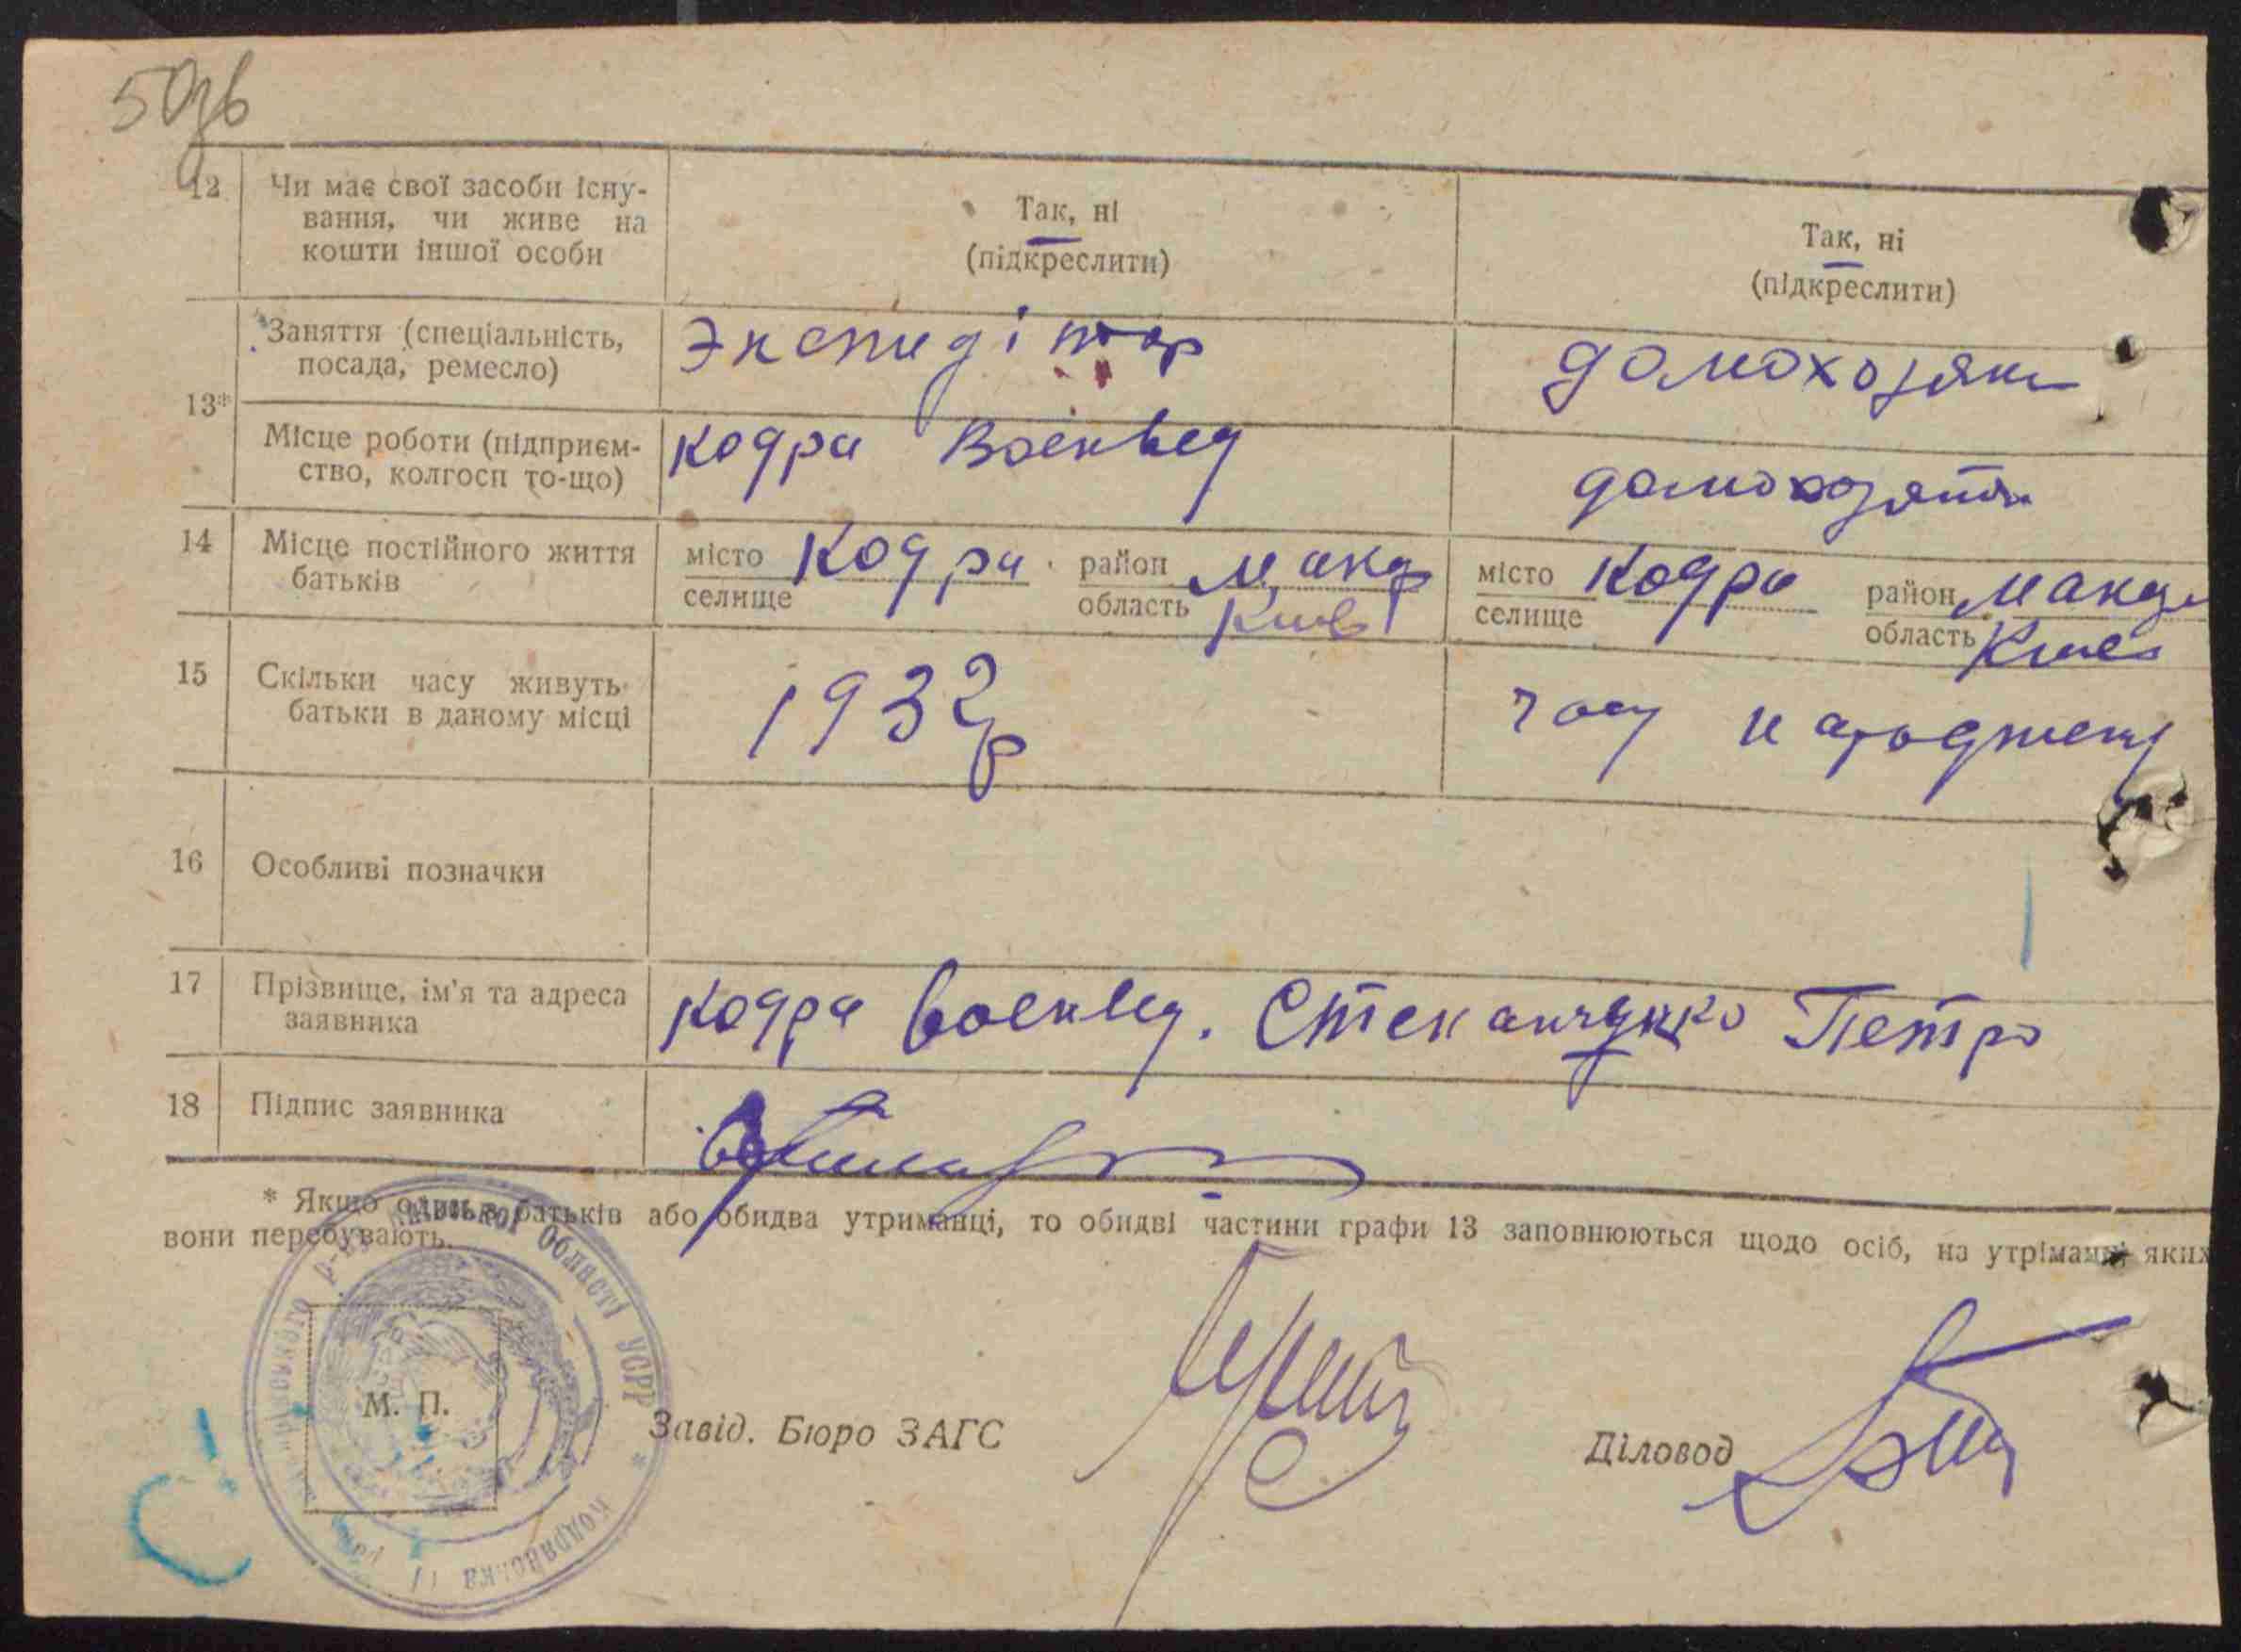 50зв
12 Чи має свої засоби існу-
вання, чи живе на
кошти іншої особи
Так, ні
(підкреслити)
Так, ні
(підкреслити)
13*
Заняття (спеціальність,
посада, ремесло)
Экспидітор
домохозяйк
Місце роботи (підприєм-
ство, колгосп то-що)
Кодра Военвед
домохозяйк
14 Місце постійного життя
батьків
місто Кодра район Макар
селище область Київ
місто Кодра район Макар
селище область Київ
15 Скільки часу живуть
батьки в даному місці
1932р
часу народженя
16 Особливі позначки
17 Прізвище, ім'я та адреса
заявника
Кодра Военвед. Петро
18 Підпис заявника
* Якщо один з батьків або обидва утриманці, то обидві частини графи 13 заповнюються щодо осіб, на утріманні яких
вони перебувають.
області УСРР
Кодрянська
М. П.
Завід. Бюро ЗАГС
Діловод